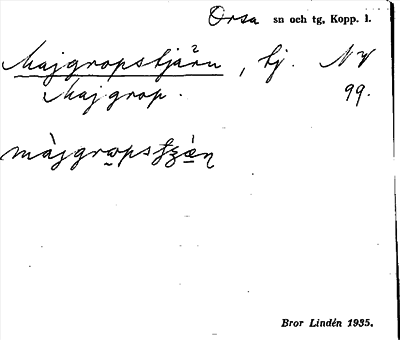 Orsa sn och tg, Kopp. l.
Majgropstjärn, tj. NV
Majgrop. 99.
Bror Lindén 1935.